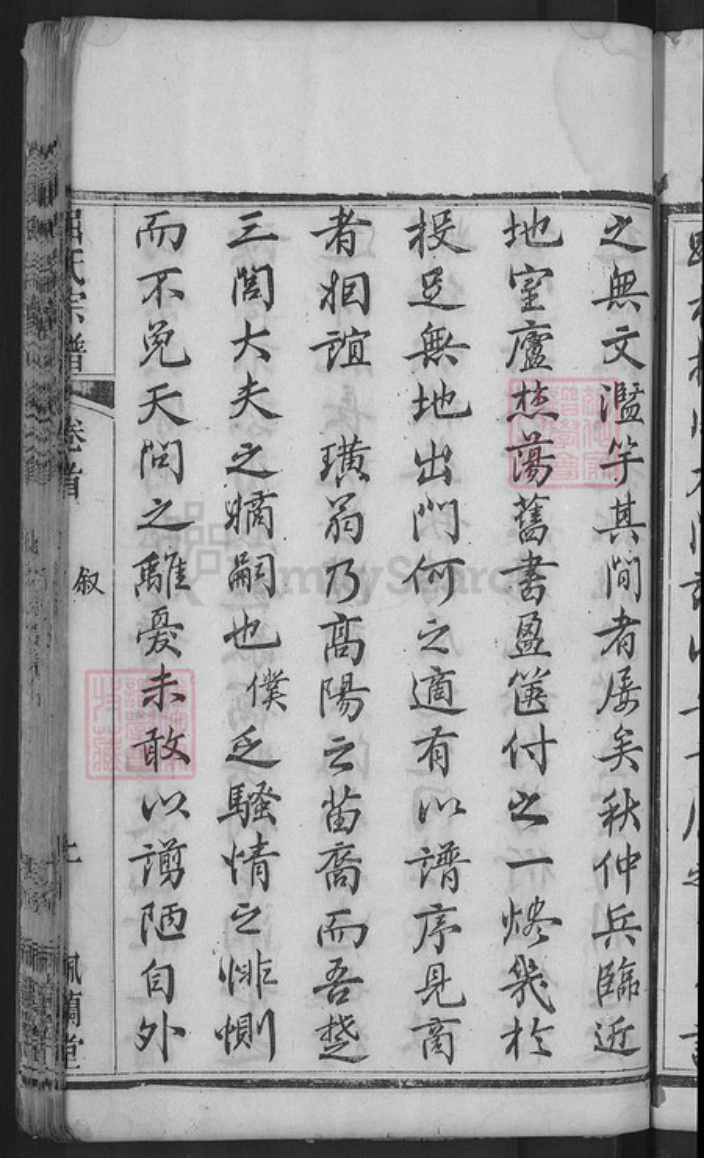 之無文濫竽其間者屢矣秋仲兵臨近
地室廬焚蕩舊書盈篋付之一燼幾於
投足無地出門何之適有以譜序見商
者相誼 璜翁乃高陽之苗裔而吾楚
三閭大夫之嫡嗣也僕乏騷情之悱惻
而不免天問之離憂未敢以謭陋自外
屈氏宗譜
卷首
叙
七
佩蘭堂
FamilySearch